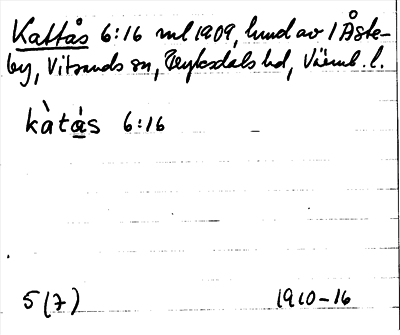 Kattås 6:16 ml 1909, hmd av 1 Åste-
by, Vitsands sn, Fryksdals hd, Värml. l.
kàtǻs 6:16
5 (7) 1910-16